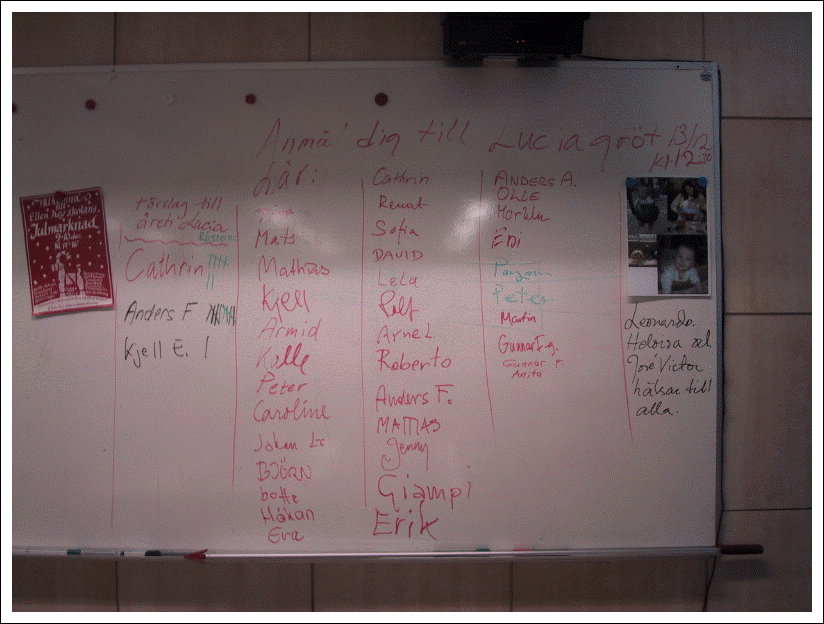 Anmäl dig till Lucia gröt 13/12
kl. 12 30
här:
Välkomna
till
Ellen Key skolans
Julmarknad
förslag till
årets Lucia
RÖSTER
Cathrin
Anders F
Kjell E. |
Tina
Mats
Mathias
Kjell
Armid
Kalle
Peter
Caroline
Johan
BJÖRN
botte
Håkan
Eva
Cathrin
Renat
Sofia
DAVID
Lela
Rolf
Arnel
Roberto
Anders F.
MATTIAS
Jenny
Giampi
Erik
ANDERS A.
OLLE
Edi
Peter
Martin
Gunnar
Gunnar F.
Anita
Leonardo.
Heloisa och
José Victor
hälsar till
alla.